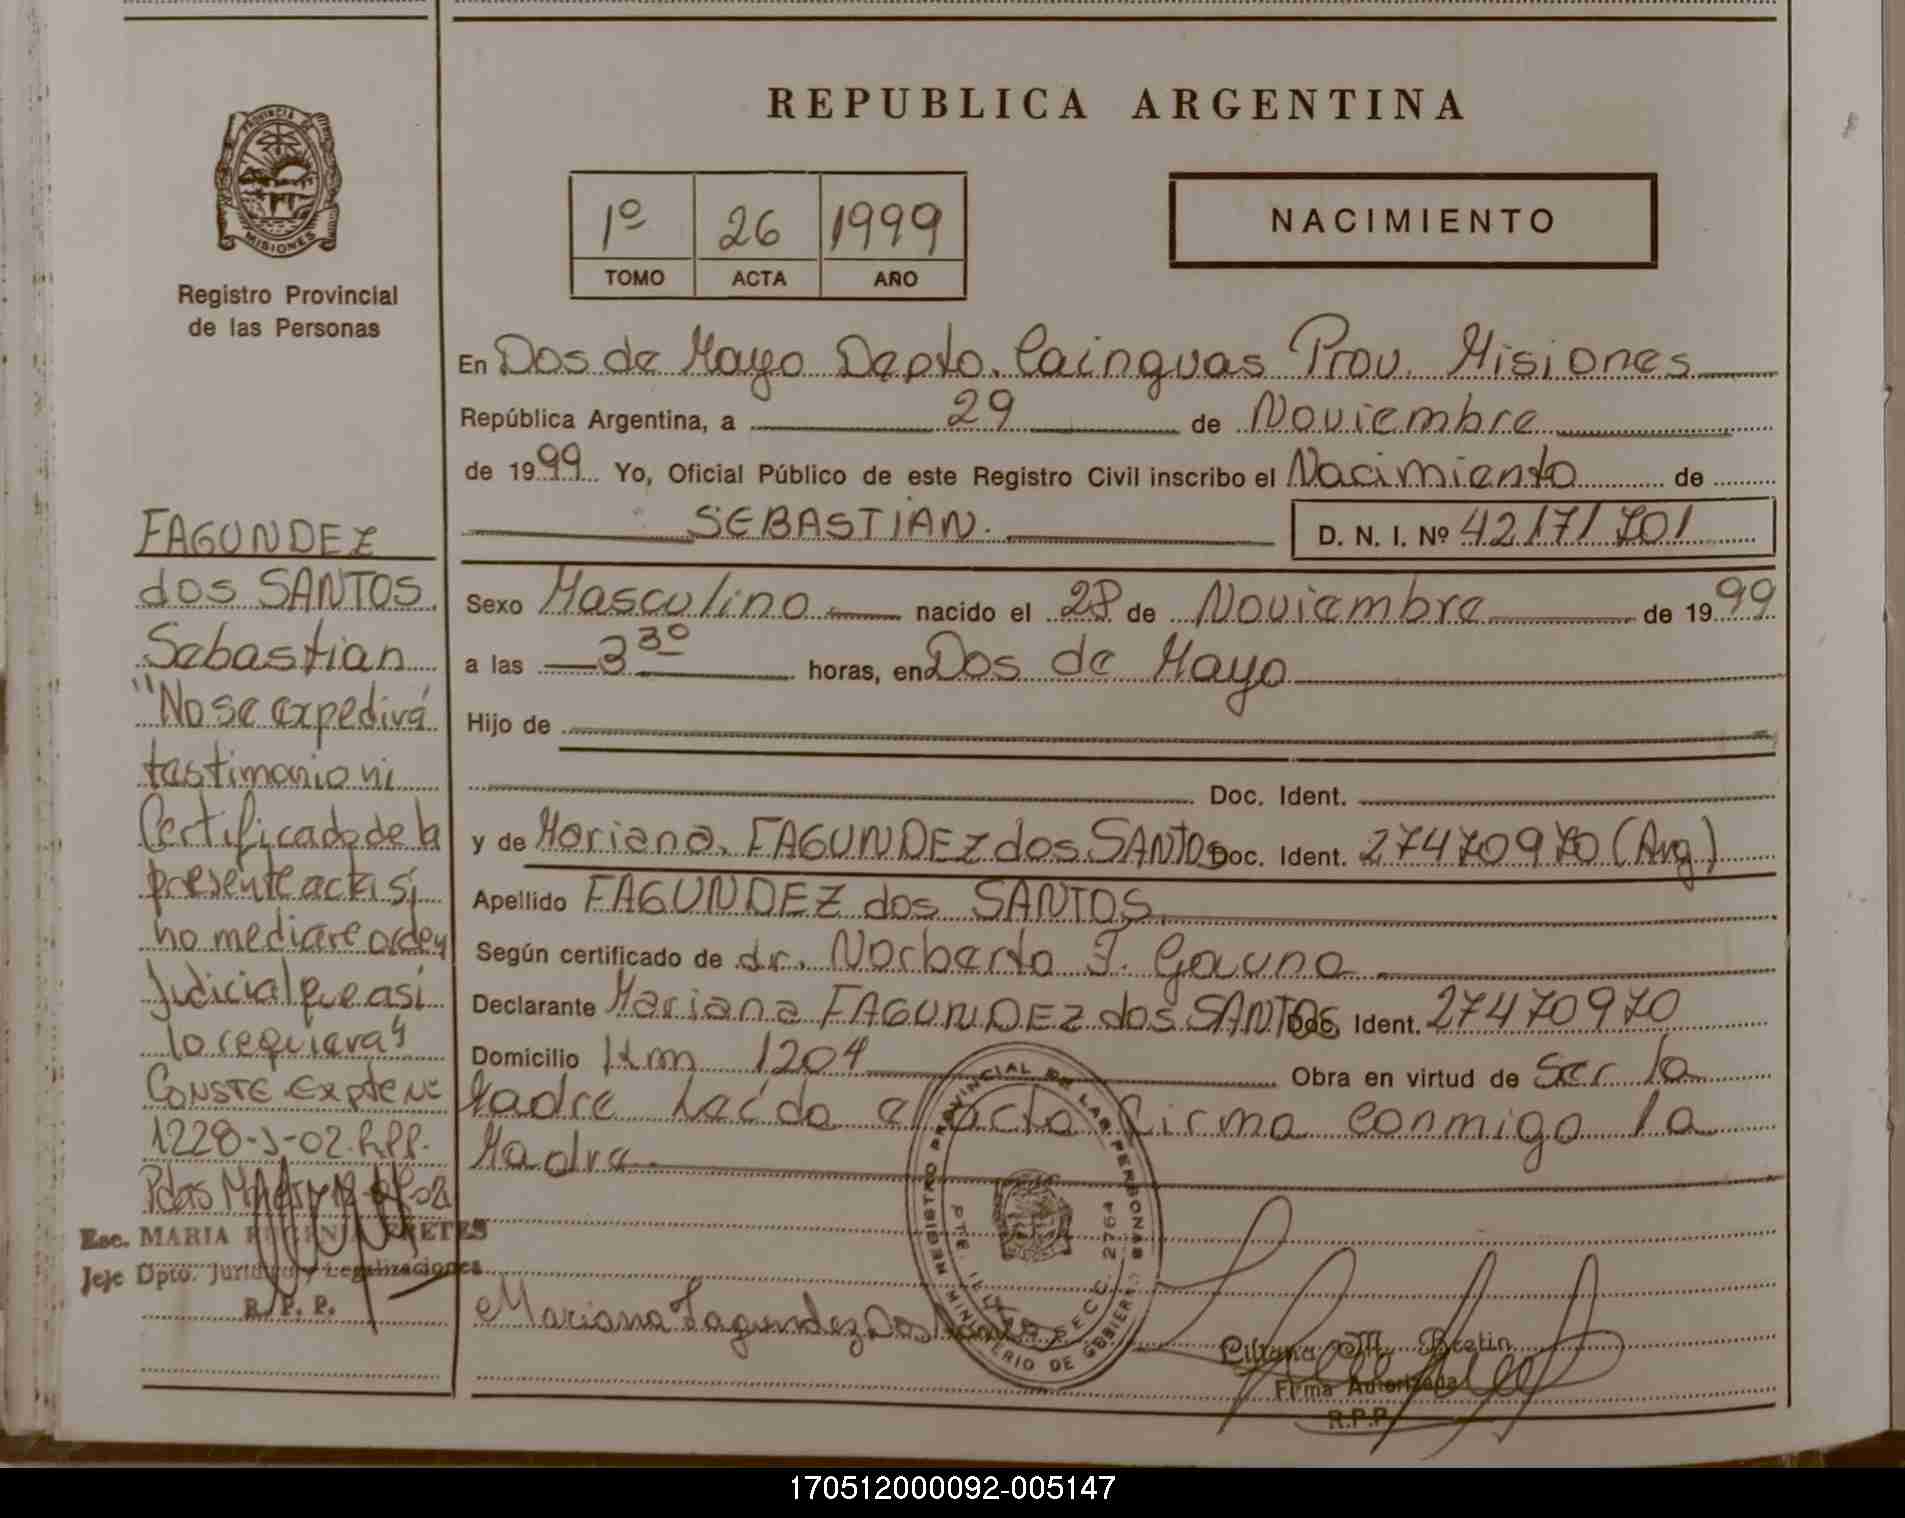 PROVINCIA DE
MISIONES
Registro Provincial
de las Personas
FAGUNDEZ
dos SANTOS.
Sebastian
"No se expedirá
testimonio ni
Certificado de la
presente acta si
no mediare orden
Judicial que asi
lo requiera"
CONSTE Expte Nº
1228-J-02. R.P.P.
Pdas
Esc. MARIA
Jefe Dpto. Juridico y Legalizaciones
R. P. P.
REPUBLICA ARGENTINA
1º 26 1999
TOMO ACTA AÑO
NACIMIENTO
En Dos de Mayo Depto. Cainguas Prov. Misiones
República Argentina, a 29 de Noviembre
de 1999 Yo, Oficial Público de este Registro Civil inscribo el Nacimiento de
SEBASTIAN. D. N. I. Nº 42171701
Sexo Masculino nacido el 28 de Noviembre de 1999
a las 3 30 horas, en Dos de Mayo
Hijo de
Doc. Ident.
y de Mariana. FAGUNDEZ dos SANTOS Doc. Ident. 27470970 (Arg)
Apellido FAGUNDEZ dos SANTOS
Según certificado de dr. Norberto J. Gauna
Declarante Mariana FAGUNDEZ dos SANTOS Doc. Ident. 27470970
Domicilio Km 1204 Obra en virtud de Ser la
Madre Leído el acta firma conmigo la
Madre.
REGISTRO PROVINCIAL DE LAS PERSONAS
MINISTERIO DE GOBIERNO
SECC. 2764
Mariana Fagundez Dos Santos
Liliana M. Bretin
Firma Autorizada
R.P.P.
170512000092-005147